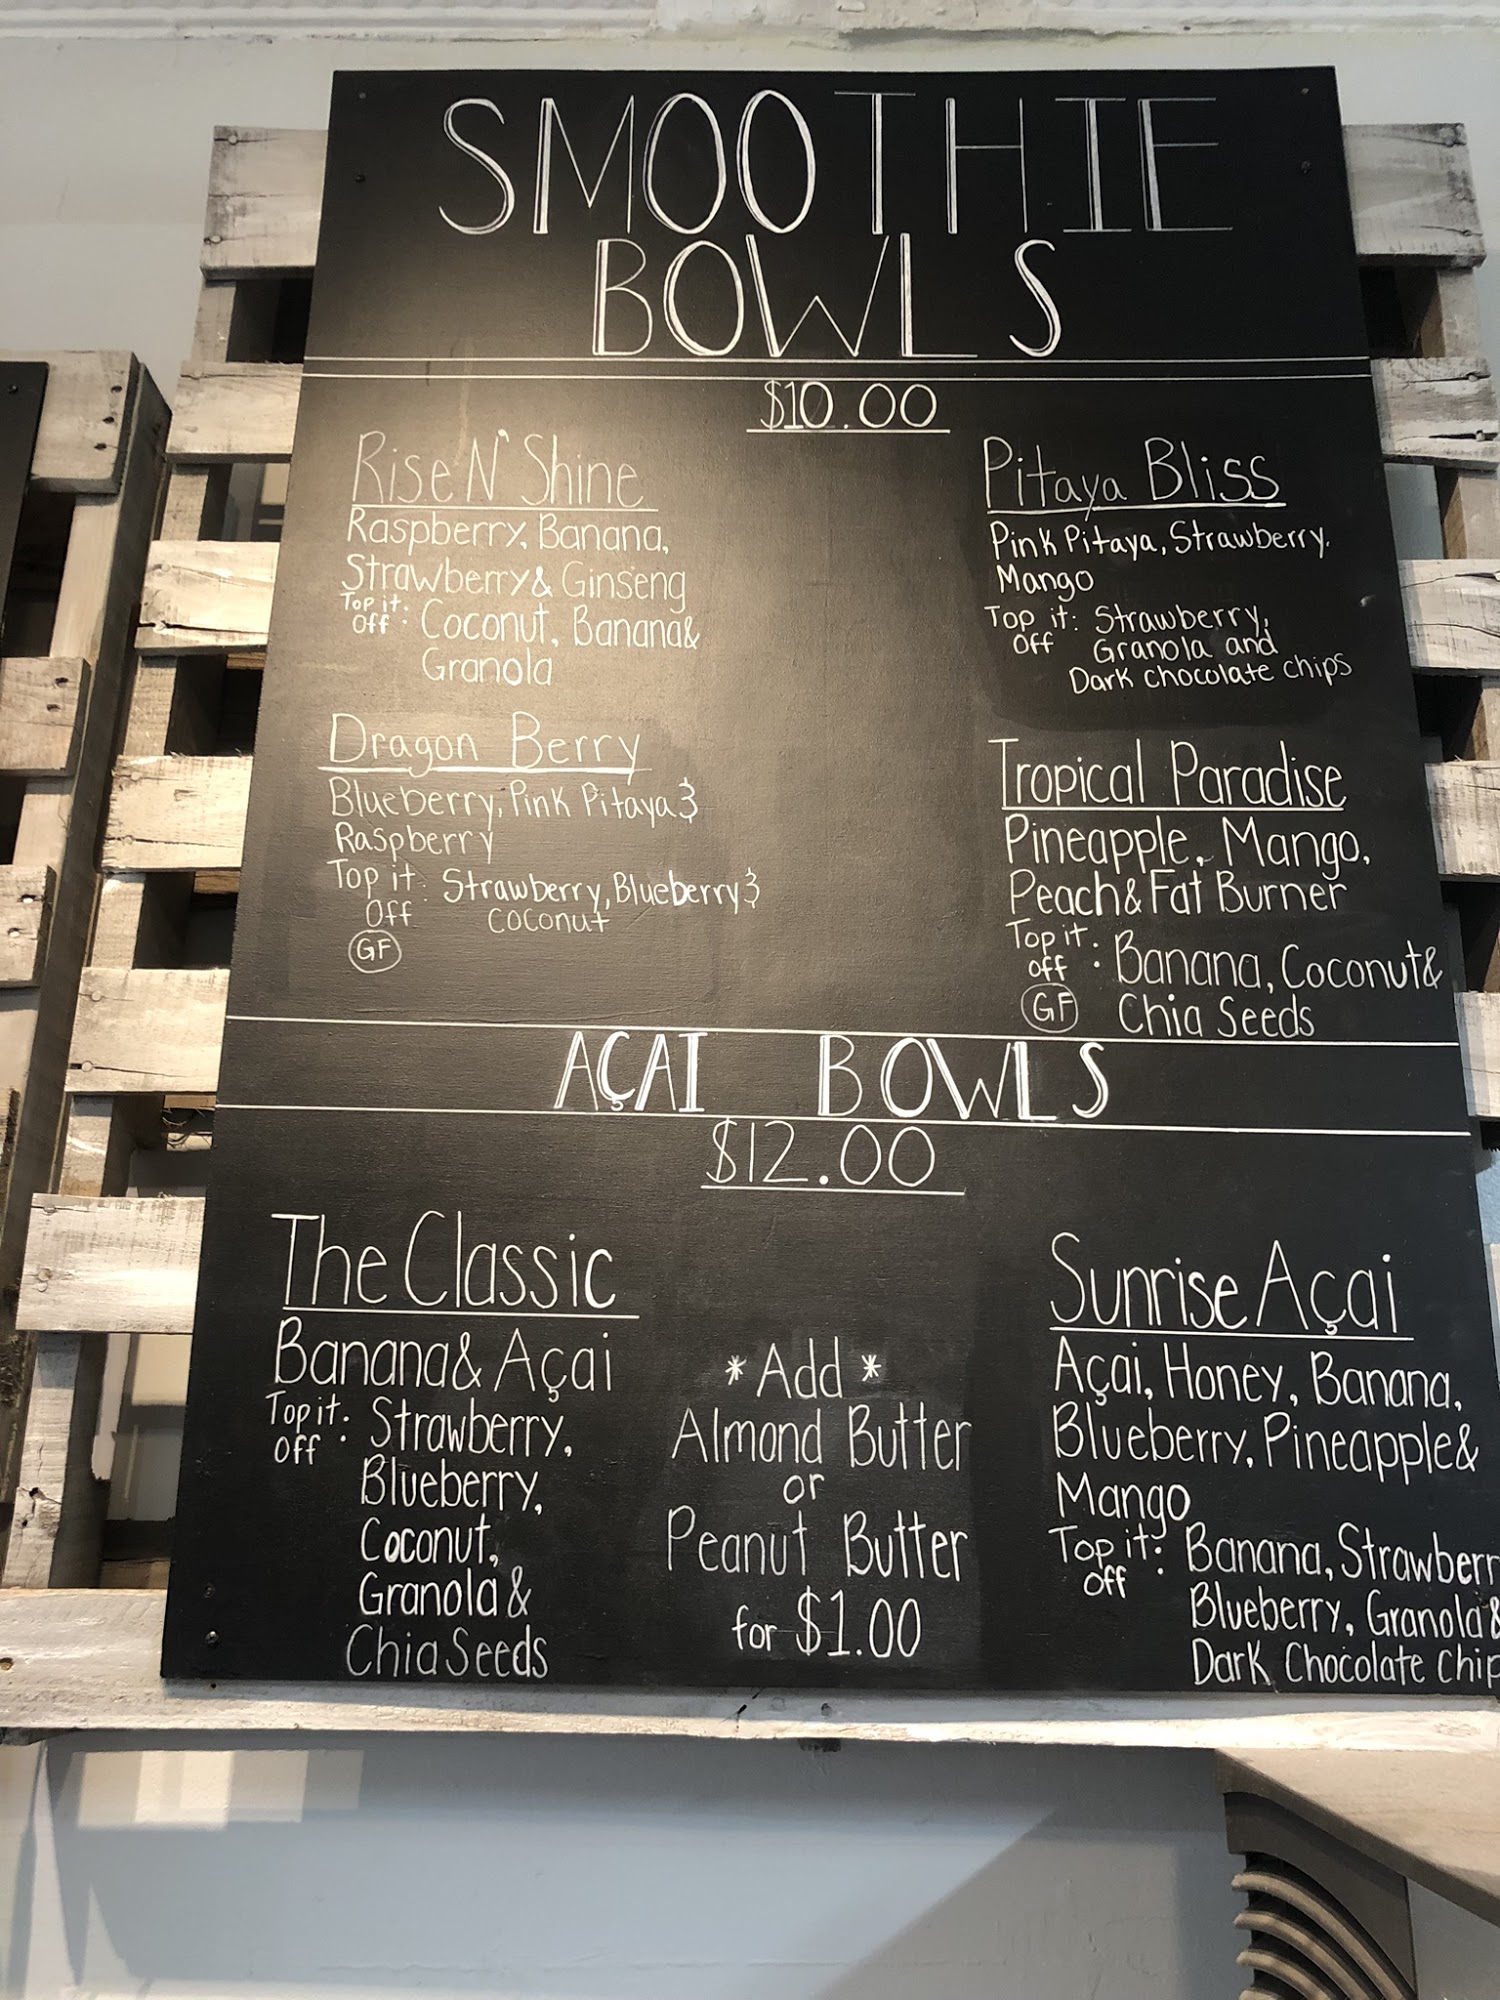 SMOOTHIE
BOWLS
$10.00
Rise N' Shine
Raspberry, Banana,
Strawberry & Ginseng
Top it : Coconut, Banana &
Off Granola
Dragon Berry
Blueberry, Pink Pitaya &
Raspberry
Top it : Strawberry, Blueberry &
Off coconut
GF
Pitaya Bliss
Pink Pitaya, Strawberry,
Mango
Top it : Strawberry,
Off Granola and
Dark chocolate chips
Tropical Paradise
Pineapple, Mango,
Peach & Fat Burner
Top it : Banana, Coconut &
off
GF Chia Seeds
AÇAI BOWLS
$12.00
The Classic
Banana & Açai
Top it : Strawberry,
Off Blueberry,
Coconut,
Granola &
Chia Seeds
* Add *
Almond Butter
or
Peanut Butter
for $1.00
Sunrise Açai
Açai, Honey, Banana,
Blueberry, Pineapple &
Mango
Top it : Banana, Strawberr
Off Blueberry, Granola &
Dark Chocolate Chip